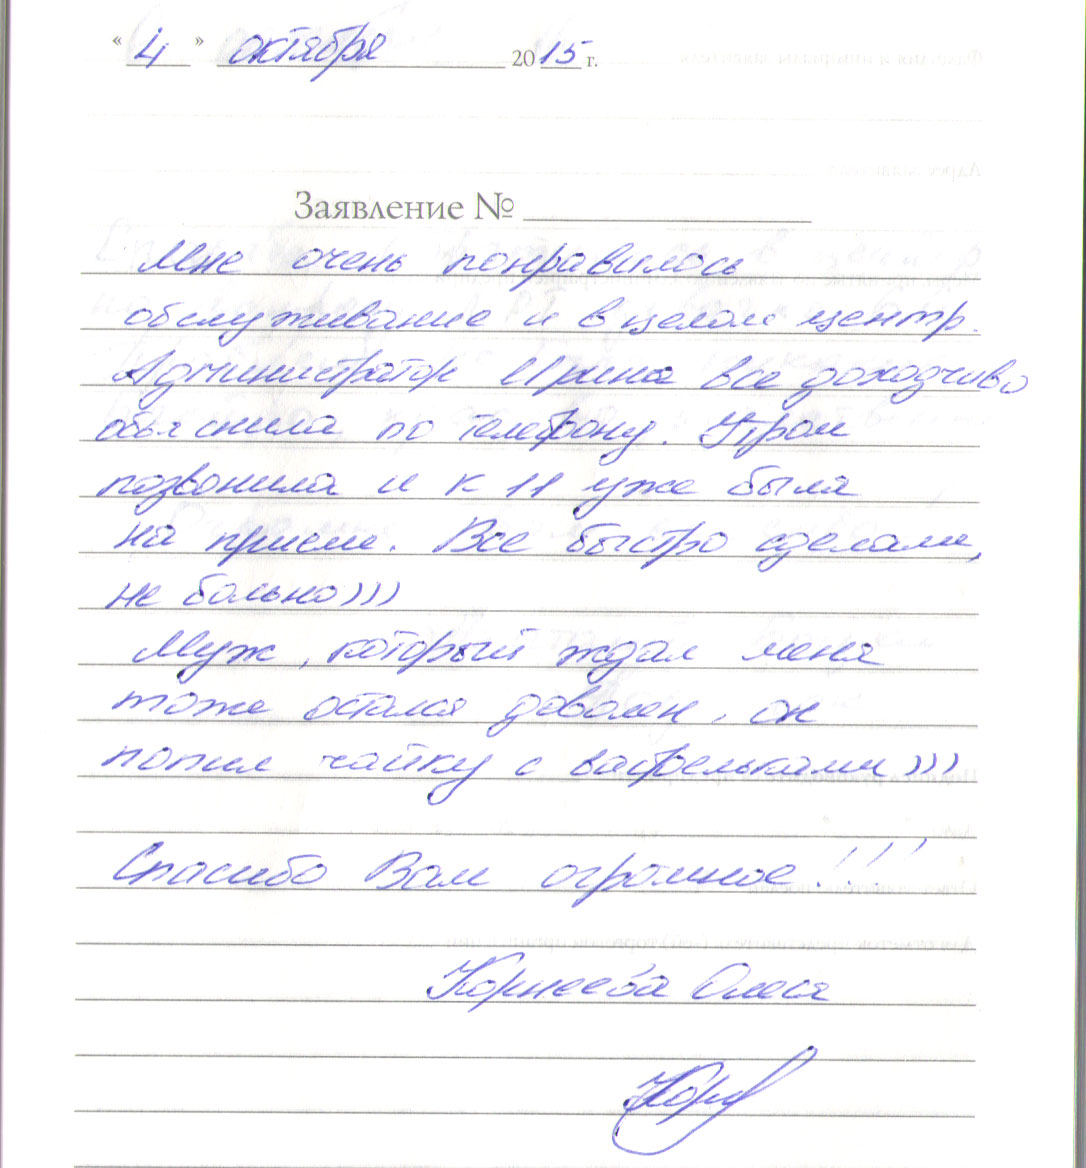 « 4 » октября 2015 г.
Заявление №
Мне очень понравилось
обслуживание и в целом центр.
Администратор Ирина все доходчиво
объяснила по телефону. Утром
позвонила и к 11 уже была
на приеме. Все быстро сделали,
не больно)))
Муж, который ждал меня
тоже остался доволен, он
попил чайку с вафельками)))
Спасибо Вам огромное!!!
Корнеева Олеся